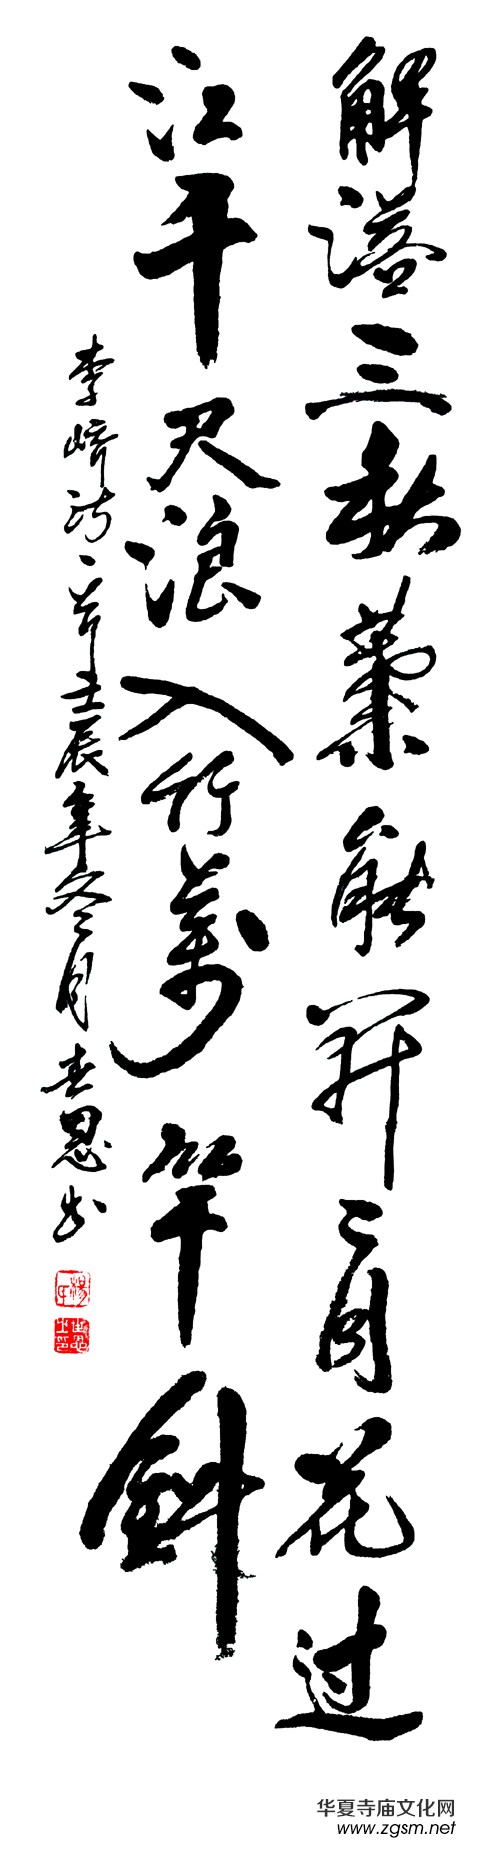 解落三秋葉能開二月花过
江千尺浪入竹萬竿斜
李峤诗一首壬辰年冬月世恩书
华夏寺庙文化网
www.zgsm.net